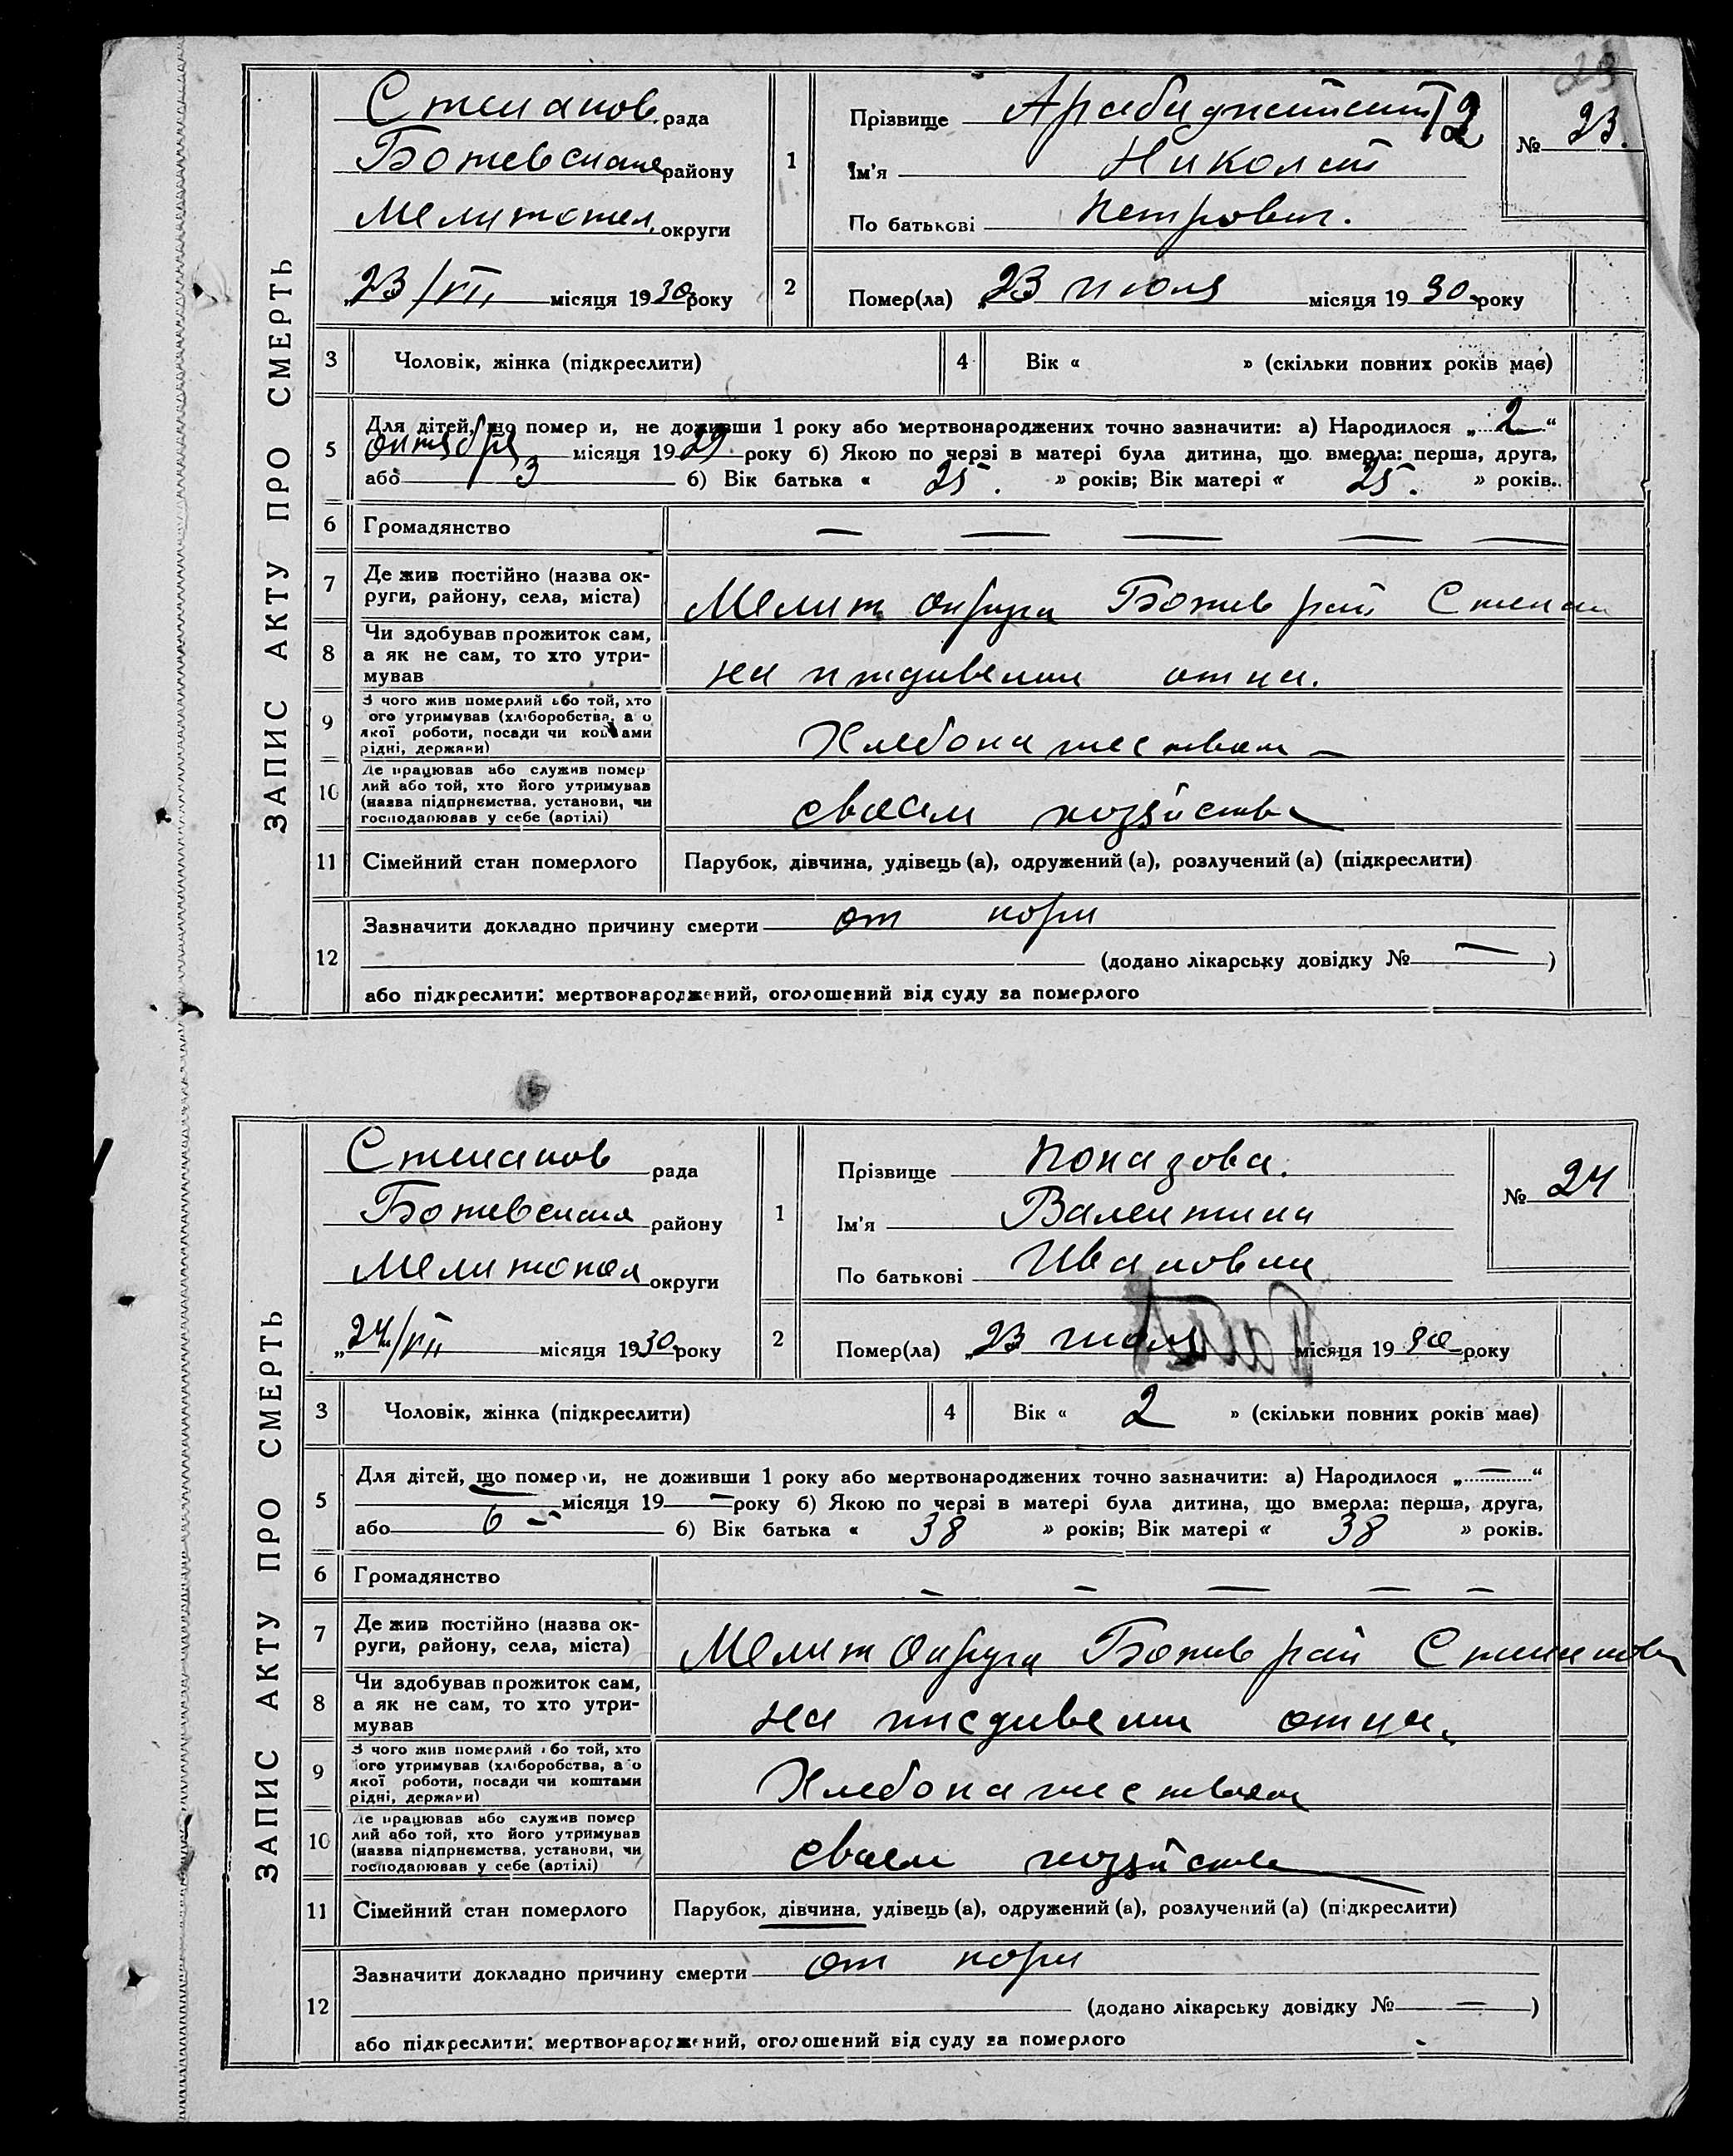 23
ЗАПИС АКТУ ПРО СМЕРТЬ
Степанов. рада
Божевская району
Мелитопол. округи
„23/VII місяця 1930 року
1
Прізвище
Ім'я Николай
По батькові Петрович.
№ 23.
2
Помер(ла) „23 июля місяця 1930 року
3 Чоловік, жінка (підкреслити)
4 Вік « » (скільки повних років має)
5
Для дітей, що померли, не доживши 1 року або мертвонароджених точно зазначити: а) Народилося „ 2 “
октября місяця 1929 року б) Якою по черзі в матері була дитина, що вмерла: перша, друга,
або 3 б) Вік батька « 25. » років; Вік матері « 25. » років.
6 Громадянство — — — — —
7 Де жив постійно (назва ок-
руги, району, села, міста) Мелит округа Божев рай Степан
8 Чи здобував прожиток сам,
а як не сам, то хто утри-
мував на иждивении отца.
9 З чого жив померлий або той, хто
його утримував (хліборобства, або
якої роботи, посади чи коштами
рідні, держави) Хлебопашеством —
10 Де працював або служив помер
лий або той, хто його утримував
(назва підприємства, установи, чи
господарював у себе (артілі) своем хозяйстве
11 Сімейний стан померлого Парубок, дівчина, удівець (а), одружений (а), розлучений (а) (підкреслити)
12
Зазначити докладно причину смерти от кори
(додано лікарську довідку № — )
або підкреслити: мертвонароджений, оголошений від суду за померлого
ЗАПИС АКТУ ПРО СМЕРТЬ
Степанов рада
Божевская району
Мелитопол округи
„24/VII місяця 1930 року
1
Прізвище Поназова.
Ім'я Валентина
По батькові Ивановна
№ 24
2
Помер(ла) „23 июля місяця 1930 року
3 Чоловік, жінка (підкреслити)
4 Вік « 2 » (скільки повних років має)
5
Для дітей, що померли, не доживши 1 року або мертвонароджених точно зазначити: а) Народилося „ — “
— місяця 19 — року б) Якою по черзі в матері була дитина, що вмерла: перша, друга,
або 6 — б) Вік батька « 38 » років; Вік матері « 38 » років.
6 Громадянство — — — — —
7 Де жив постійно (назва ок-
руги, району, села, міста) Мелит округа Божев рай Степанов
8 Чи здобував прожиток сам,
а як не сам, то хто утри-
мував на иждивении отца.
9 З чого жив померлий або той, хто
його утримував (хліборобства, або
якої роботи, посади чи коштами
рідні, держави) Хлебопашеством
10 Де працював або служив помер
лий або той, хто його утримував
(назва підприємства, установи, чи
господарював у себе (артілі) своем хозяйстве
11 Сімейний стан померлого Парубок, дівчина, удівець (а), одружений (а), розлучений (а) (підкреслити)
12
Зазначити докладно причину смерти от кори
(додано лікарську довідку № — )
або підкреслити: мертвонароджений, оголошений від суду за померлого